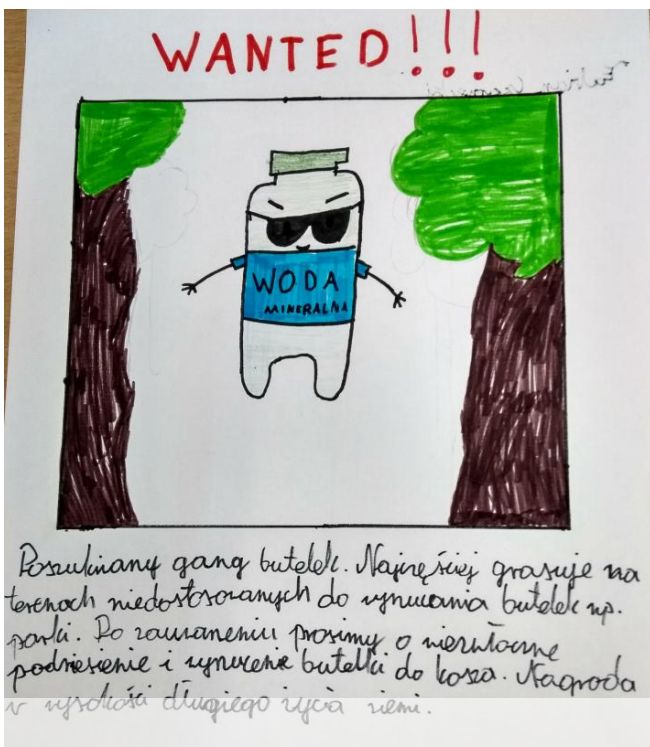 WANTED!!!
WODA
MINERALNA
Poszukiwany gang butelek. Najczęściej grasuje na
terenach niedostosowanych do wyrzucania butelek np.
parki. Po zauważeniu prosimy o niezwłoczne
podniesienie i wyrzucenie butelki do kosza. Nagroda
w wysokości długiego życia ziemi.